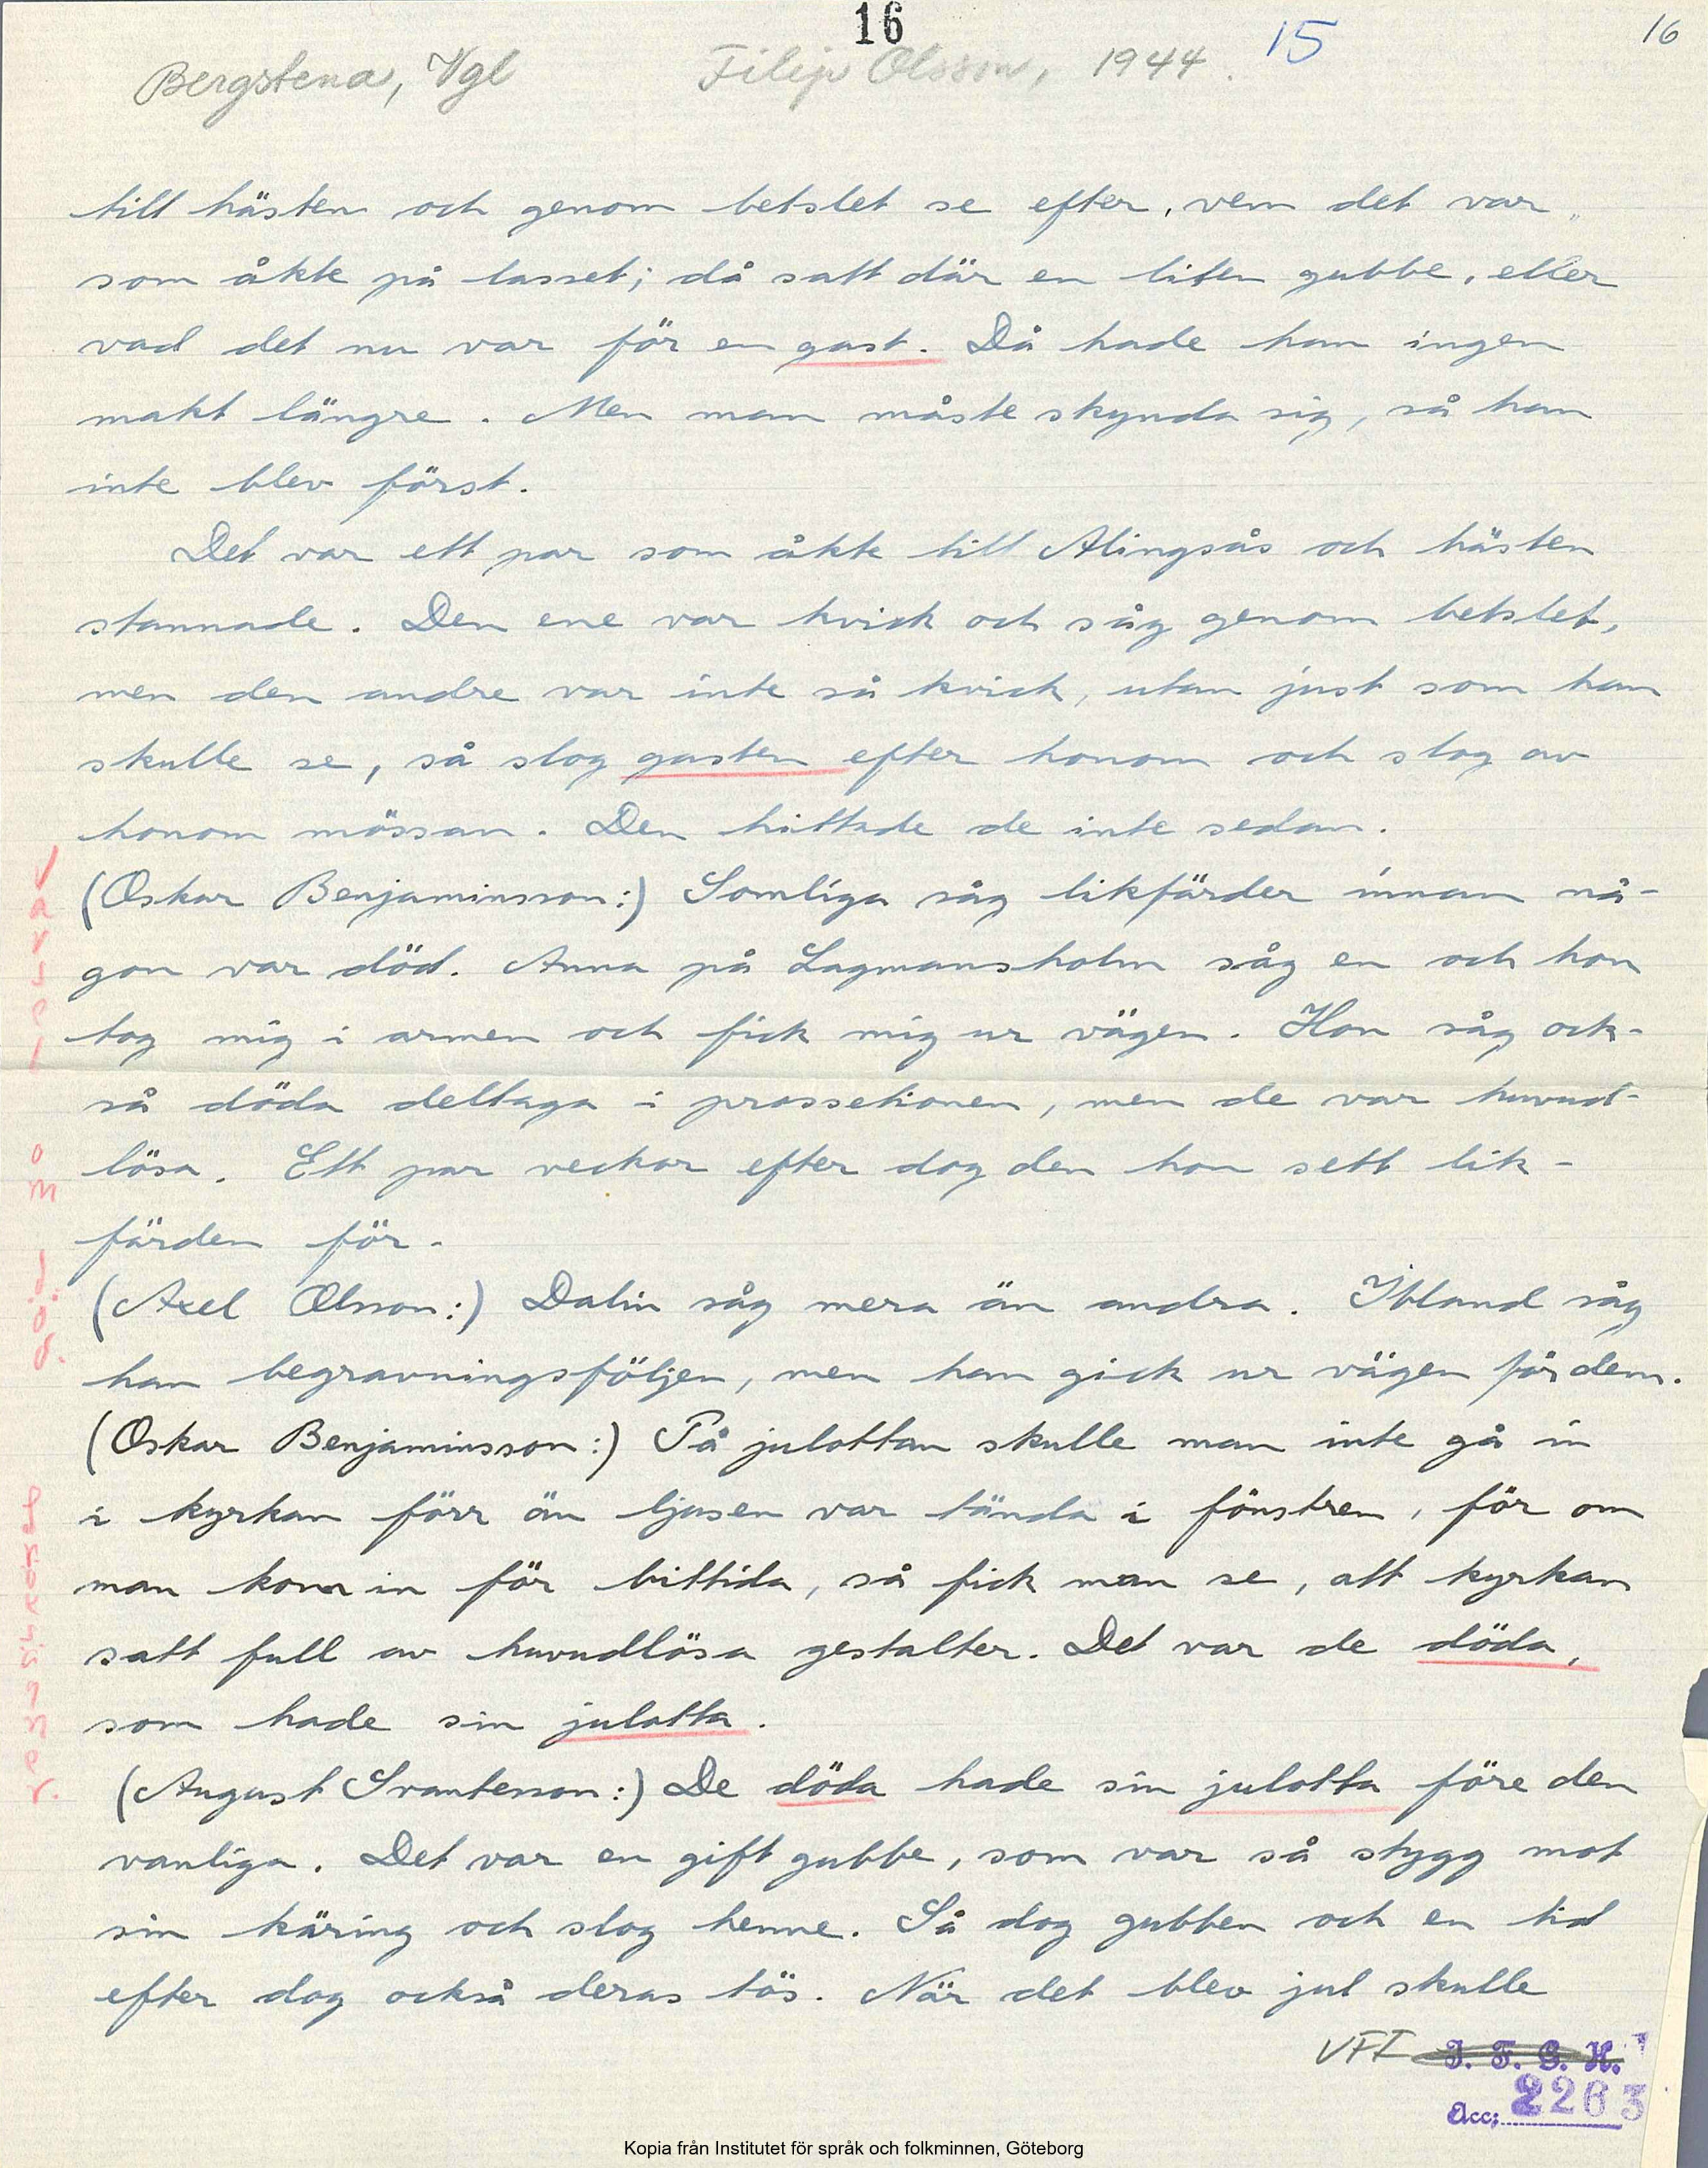 16
15
16
Bergstena, Vgl
Filip Olsson, 1944.
till hästen och genom betslet se efter, vem det var,
som åkte på lasset; då satt där en liten gubbe, eller
vad det nu var för en gast. Då hade han ingen
makt längre. Men man måste skynda sig, så han
inte blev först.
Det var ett par som åkte till Alingsås och hästen
stannade. Den ene var kvick och såg genom betslet,
men den andre var inte så kvick, utan just som han
skulle se, så slog gasten efter honom och slog av
honom mössan. Den hittade de inte sedan.
(Oskar Benjaminsson:) Somliga såg likfärder innan nå-
gon var död. Anna på Lagmansholm såg en och hon
tog mig i armen och fick mig ur vägen. Hon såg ock-
så döda deltaga i prossetionen, men de var huvud-
lösa. Ett par veckor efter dog den hon sett lik-
färden för.
(Axel Olsson:) Dalin såg mera än andra. Ibland såg
han begravningsföljen, men han gick ur vägen för dem.
(Oskar Benjaminsson:) På julottan skulle man inte gå in
i kyrkan förr än ljusen var tända i fönstren, för om
man kom in för bittida, så fick man se, att kyrkan
satt full av huvudlösa gestalter. Det var de döda,
som hade sin julotta.
(August Svantesson:) De döda hade sin julotta före den
vanliga. Det var en gift gubbe, som var så stygg mot
sin käring och slog henne. Så dog gubben och en tid
efter dog också deras tös. När det blev jul skulle
Varsel om död.
VFI I. F. G. H.
Acc: 2263
Kopia från Institutet för språk och folkminnen, Göteborg